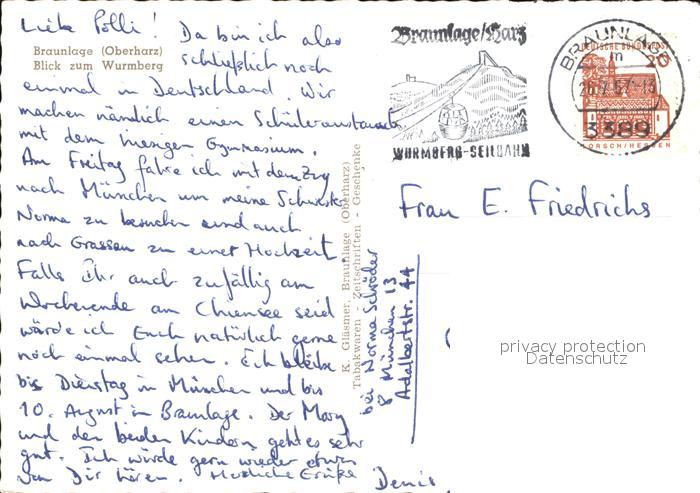 Liebe Polli! Da bin ich also
Braunlage (Oberharz)
Blick zum Wurmberg
schließlich noch
einmal in Deutschland. Wir
machen nämlich einen Schüleraustausch
mit dem hiesigen Gymnasium.
Am Freitag fahre ich mit dem Zug
nach München um meine Schwester
Norma zu besuchen und auch
nach Grassau zu einer Hochzeit.
Falls Ihr auch zufällig am
Wochenende am Chiemsee seid
würde ich Euch natürlich gerne
noch einmal sehen. Ich bleibe
bis Dienstag in München und bis
10. August in Braunlage. Der Mary
und den beiden Kindern geht es sehr
gut. Ich würde gern wieder etwas
von Dir hören. Herzliche Grüße Denis
K. Gläsmer, Braunlage (Oberharz)
Tabakwaren - Zeitschriften - Geschenke
bei Norma Schröder
8 München 13
Adalbertstr. 44
Braunlage/Harz
WURMBERG-SEILBAHN
BRAUNLAGE
m
26.7.67-13
3389
DEUTSCHE BUNDESPOST
20
LORSCH/HESSEN
Frau E. Friedrichs
privacy protection
Datenschutz